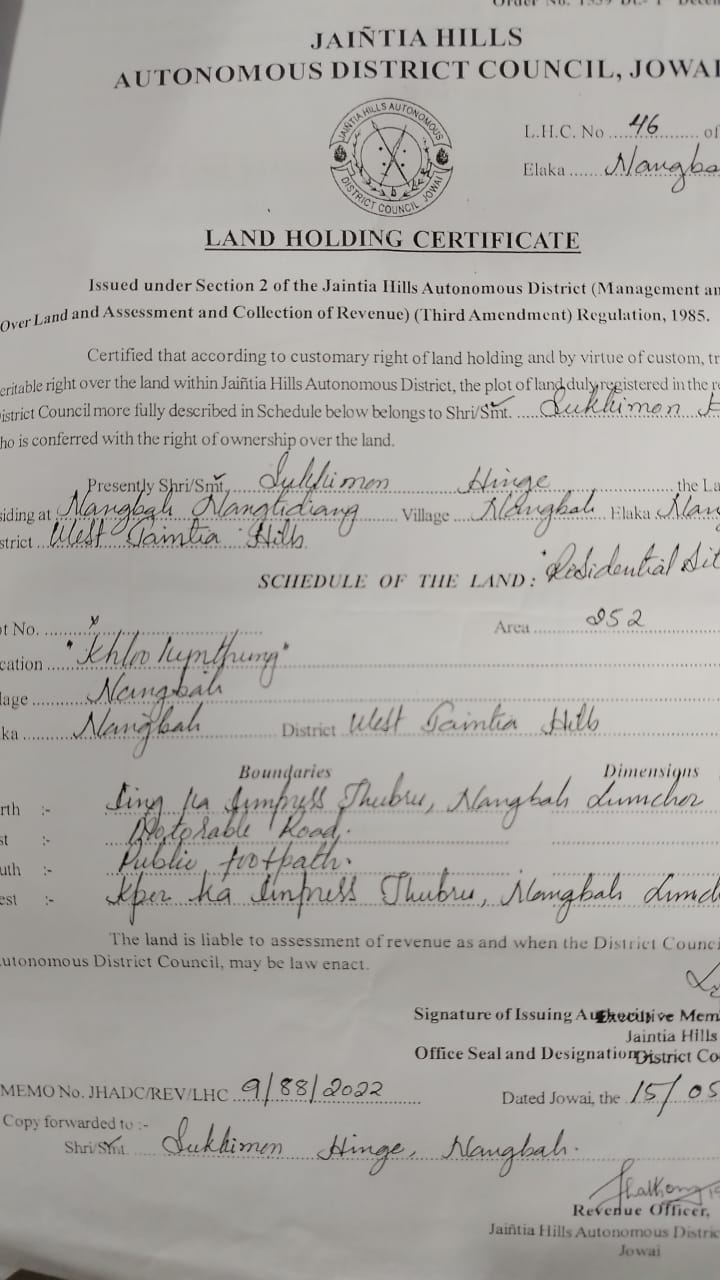 JAIÑTIA HILLS
AUTONOMOUS DISTRICT COUNCIL, JOWAI
JAIÑTIA HILLS AUTONOMOUS
DISTRICT COUNCIL JOWAI
L.H.C. No ....46......... of
Elaka ...... Nangba
LAND HOLDING CERTIFICATE
Issued under Section 2 of the Jaintia Hills Autonomous District (Management an
Over Land and Assessment and Collection of Revenue) (Third Amendment) Regulation, 1985.
Certified that according to customary right of land holding and by virtue of custom, tr
eritable right over the land within Jaiñtia Hills Autonomous District, the plot of land duly registered in the re
istrict Council more fully described in Schedule below belongs to Shri/Smt. ..... Sukhimon H
ho is conferred with the right of ownership over the land.
Presently Shri/Smt ..... Sukhimon Hinge ..... the La
siding at Nangbah ..... Village ... Nangbah Elaka Nan
strict ... West Jaintia Hills
SCHEDULE OF THE LAND: "Residential Sit
ot No. ........ x
Area ......... 252
cation ..... "Khloo Kynthung"
lage ......... Nangbah
ka ......... Nangbah District West Jaintia Hills
Boundaries Dimensions
rth :- Iing ka Thubru, Nangbah Lumchor
st :- Motorable Road.
uth :- Public footpath.
est :- Kper ka Thubru, Nangbah Lumc
The land is liable to assessment of revenue as and when the District Counci
utonomous District Council, may be law enact.
Signature of Issuing Au Executive Mem
Jaintia Hills
Office Seal and Designation District Co
MEMO No. JHADC/REV/LHC ...9/88/2022
Dated Jowai, the ..15/05
Copy forwarded to :-
Shri/Smt. .... Sukhimon Hinge, Nangbah.
Revenue Officer,
Jaiñtia Hills Autonomous Distric
Jowai